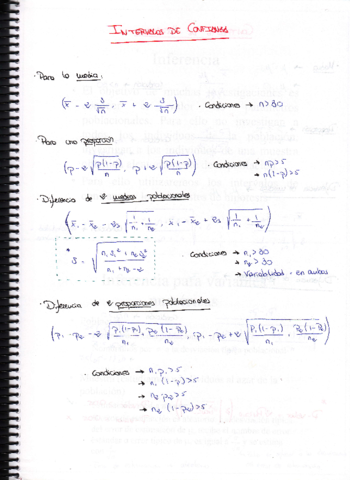 INTERVALOS DE CONFIANZA
· Para la media:
(x̄ - 2 s/√n , x̄ + 2 s/√n) · Condiciones → n>30
· Para una proporción
(p - 2 √(p(1-p)/n) , p + 2 √(p(1-p)/n)) · Condiciones → np>5
→ n(1-p)>5
· Diferencia de 2 medias poblacionales
(x̄₁ - x̄₂ - 2s √(1/n₁ + 1/n₂) , x̄₁ - x̄₂ + 2s √(1/n₁ + 1/n₂))
* s = √((n₁s₁² + n₂s₂²)/(n₁ + n₂ - 2))
· Condiciones → n₁>30
→ n₂>30
→ Variabilidad = en ambas
· Diferencia de 2 proporciones poblacionales
(p₁ - p₂ - 2 √(p₁(1-p₁)/n₁ + p₂(1-p₂)/n₂) , p₁ - p₂ + 2 √(p₁(1-p₁)/n₁ + p₂(1-p₂)/n₂))
· Condiciones → n₁p₁>5
→ n₁(1-p₁)>5
→ n₂p₂>5
→ n₂(1-p₂)>5